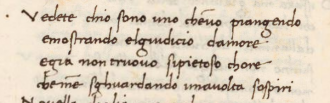 Vedete chio sono uno cheuo piangendo
emostrando elgiudicio damore
egia non truouo sipietoso chore
che me sghuardando unauolta sospiri